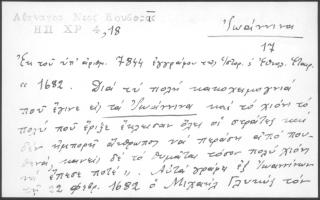 Αθηναγόρας Νεος Κουβαράς
ΗΠ ΧΡ 4, 18
Ἰωάννινα
17
Ἐκ τοῦ ὑπ' ἀριθμ. 7844 ἐγγράφου τῆς Ἱστορ. & Ἐθνολ. Ἑταιρ.
« 1682. Διὰ τὸ πολὺ κακοχειμωνιά
ποῦ ἔγινε εἰς τὰ Ἰωάννινα καὶ τὸ χιόνι τὸ
πολὺ ποῦ ἔριξε ἔκλεισαν ὅλες οἱ στράτες καὶ
δὲν ἠμπορεῖ ἄνθρωπος νὰ περάσῃ ἀπὸ που-
θενά, κανεὶς δὲ τὸ θυμᾶται τόσον πολὺ χιόνι
νὰ ἔπεσε ποτέ». Αὐτὰ γράφει ἐξ Ἰωαννίνων
τῇ 22 Φεβρ. 1682 ὁ Μιχαὴλ Γλυκὺς τὸν